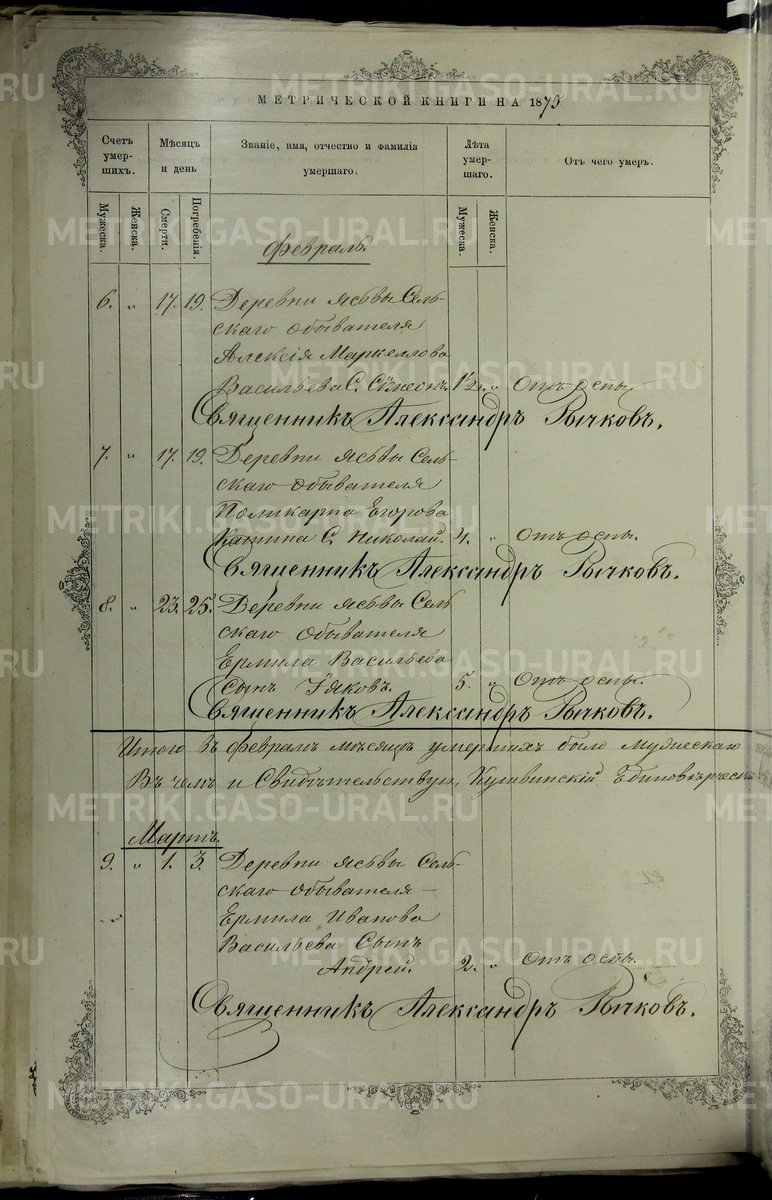 МЕТРИЧЕСКОЙ КНИГИ НА 1875
Счетъ умер-шихъ.
Мѣсяцъ и день
Званіе, имя, отчество и фамилія умершаго.
Лѣта умер-шаго.
Отъ чего умеръ.
Мужеска.
Женска.
Смерти.
Погребенія.
Мужеска.
Женска.
Февраль
6. „ 17. 19. Деревни Ясьвы Сель-
скаго обывателя
Алексія Маркеллова
Васильева С. 1/2 „ Отъ оспы.
Священникъ Александръ Рычковъ.
7. „ 17. 19. Деревни Ясьвы Сель-
скаго обывателя
Поликарпа Егорова
С. Николай. 4. „ Отъ оспы.
Священникъ Александръ Рычковъ.
8. „ 23. 25. Деревни Ясьвы Сель
скаго Обывателя
Ермила Васильева
Сынъ Іяковъ. 5. „ Отъ оспы.
Священникъ Александръ Рычковъ.
Итого въ февралѣ мѣсяцѣ умершихъ было мужескаго
Въ чемъ и Свидѣтельствуи, Кушвинскій Единовѣрческ
Мартъ.
9. „ 1. 3. Деревни Ясьвы Сель-
скаго обывателя
Ермила Иванова
Васильева Сынъ
Андрей. 2. „ Отъ оспы.
Священникъ Александръ Рычковъ.
METRIKI.GASO-URAL.RU